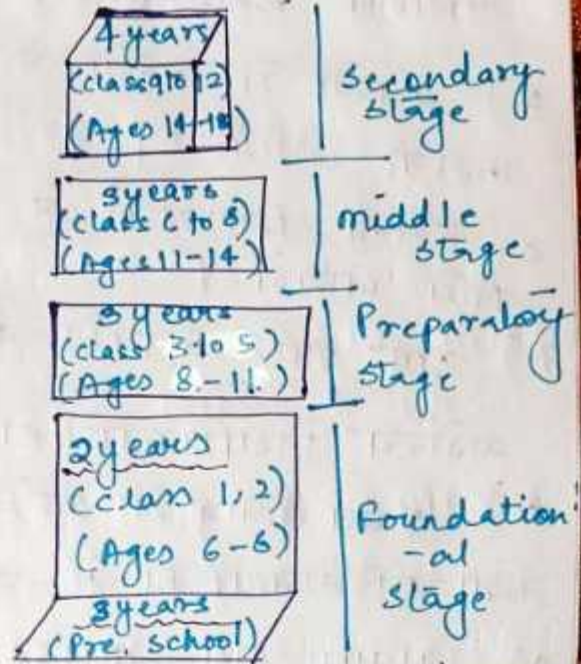 4 years
(Class 9 to 12)
(Ages 14-18)
secondary
stage
3 years
(Class 6 to 8)
(Ages 11-14)
middle
stage
3 years
(class 3 to 5)
(Ages 8-11)
Preparatory
stage
2 years
(Class 1, 2)
(Ages 6-8)
Foundation
-al
stage
3 years
(Pre. School)